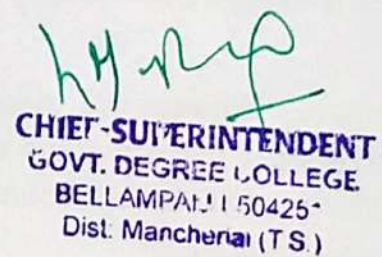 CHIEF-SUPERINTENDENT
GOVT. DEGREE COLLEGE
BELLAMPALLI 50425
Dist: Mancherial (T.S.)